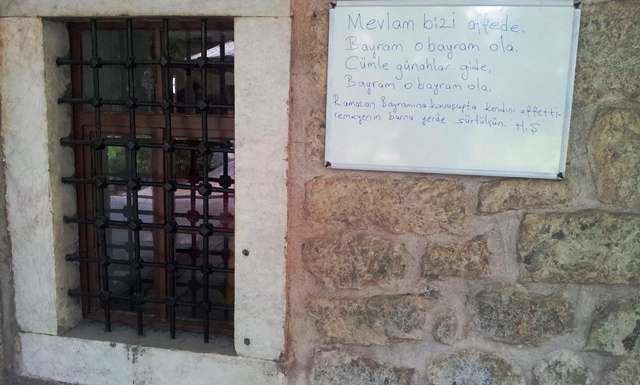 Mevlam bizi affede,
Bayram o bayram ola.
Cümle günahlar gide,
Bayram o bayram ola.
Ramazan Bayramına kavuşupta kendini affetti-
remeyenin burnu yerde sürtülsün. H.Ş